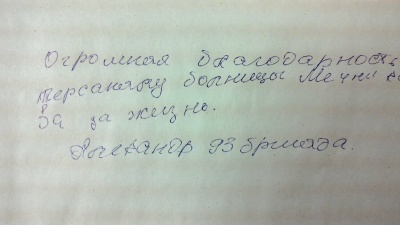 Огромная благодарность
персаналу больницы Мечни
За за жизнь.
Александр 93 бригада.